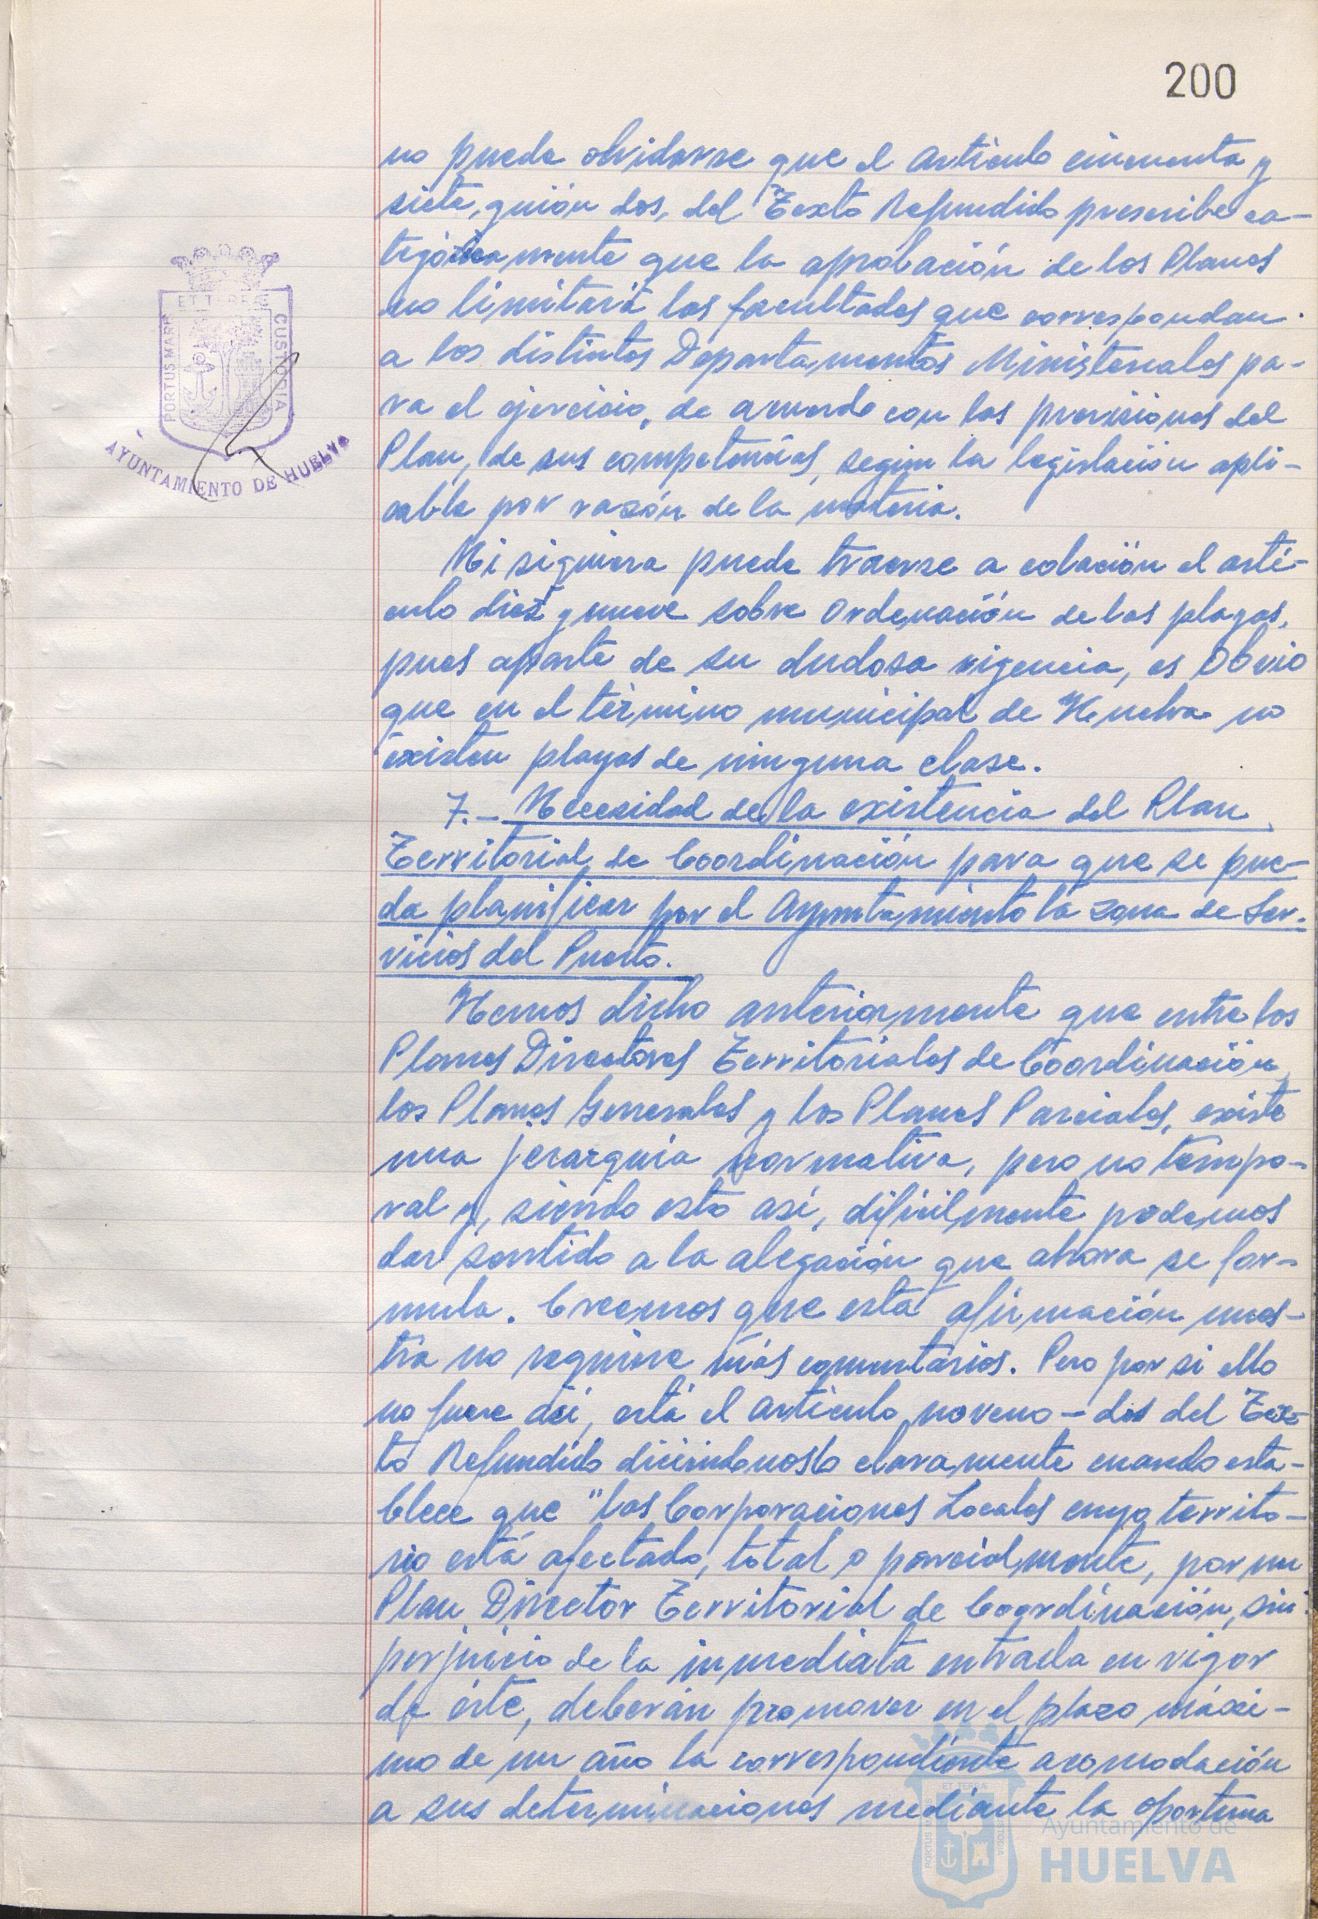 200
no puede olvidarse que el artículo cincuenta y
siete, guión dos, del Texto Refundido prescribe ca-
tegóricamente que la aprobación de los Planes
no limitará las facultades que correspondan
a los distintos Departamentos Ministeriales pa-
ra el ejercicio, de acuerdo con las previsiones del
Plan, de sus competencias, según la legislación apli-
cable por razón de la materia.
Ni siquiera puede traerse a colación el artí-
culo diez y nueve sobre Ordenación de las playas,
pues aparte de su dudosa vigencia, es Obvio
que en el término municipal de Huelva no
existen playas de ninguna clase.
7.- Necesidad de la existencia del Plan
Territorial de Coordinación para que se pue-
da planificar por el Ayuntamiento la zona de Ser-
vicios del Puerto.
Hemos dicho anteriormente que entre los
Planes Directores Territoriales de Coordinación,
los Planes Generales y los Planes Parciales, existe
una jerarquía normativa, pero no tempo-
ral y, siendo esto así, difícilmente podemos
dar sentido a la alegación que ahora se for-
mula. Creemos que esta afirmación nues-
tra no requiere más comentarios. Pero por si ello
no fuere así, está el artículo noveno - dos del Tex-
to Refundido diciéndonoslo claramente cuando esta-
blece que "las Corporaciones Locales cuyo territo-
rio está afectado, total o parcialmente, por un
Plan Director Territorial de Coordinación, sin
perjuicio de la inmediata entrada en vigor
de éste, deberán promover en el plazo máxi-
mo de un año la correspondiente acomodación
a sus determinaciones mediante la oportuna
PORTUS MARIS ET TERRÆ CUSTODIA
AYUNTAMIENTO DE HUELVA
Ayuntamiento de
HUELVA